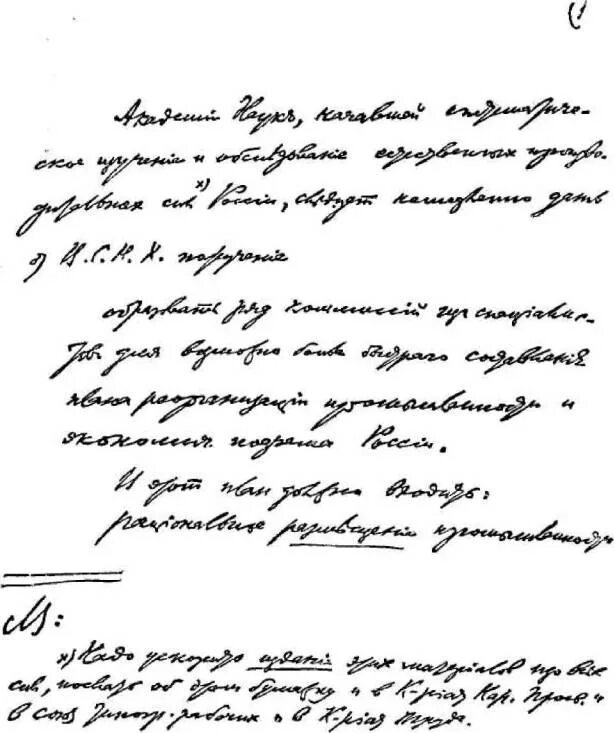 (1
Академіи Наукъ, начавшей система̅тиче-
ское изученіе и обслѣдованіе естественных произво-
дительных сил х) Россіи, слѣдует немедленно дать
от В.С.Н.Х. порученіе
образовать ряд коммиссій из спеціалис-
тов для возможно болѣе быстраго составленія
плана реорганизаціи промышленности и
экономич. подъема Россіи.
В этот план должно входить:
раціональное размѣщеніе промышленности
NB:
х) Надо ускорить изданіе этих матеріалов изо всѣх
сил, послать об этом бумажку и в К-ріат Нар. Просв. и
в союз типогр. рабочих и в К-ріат Труда.